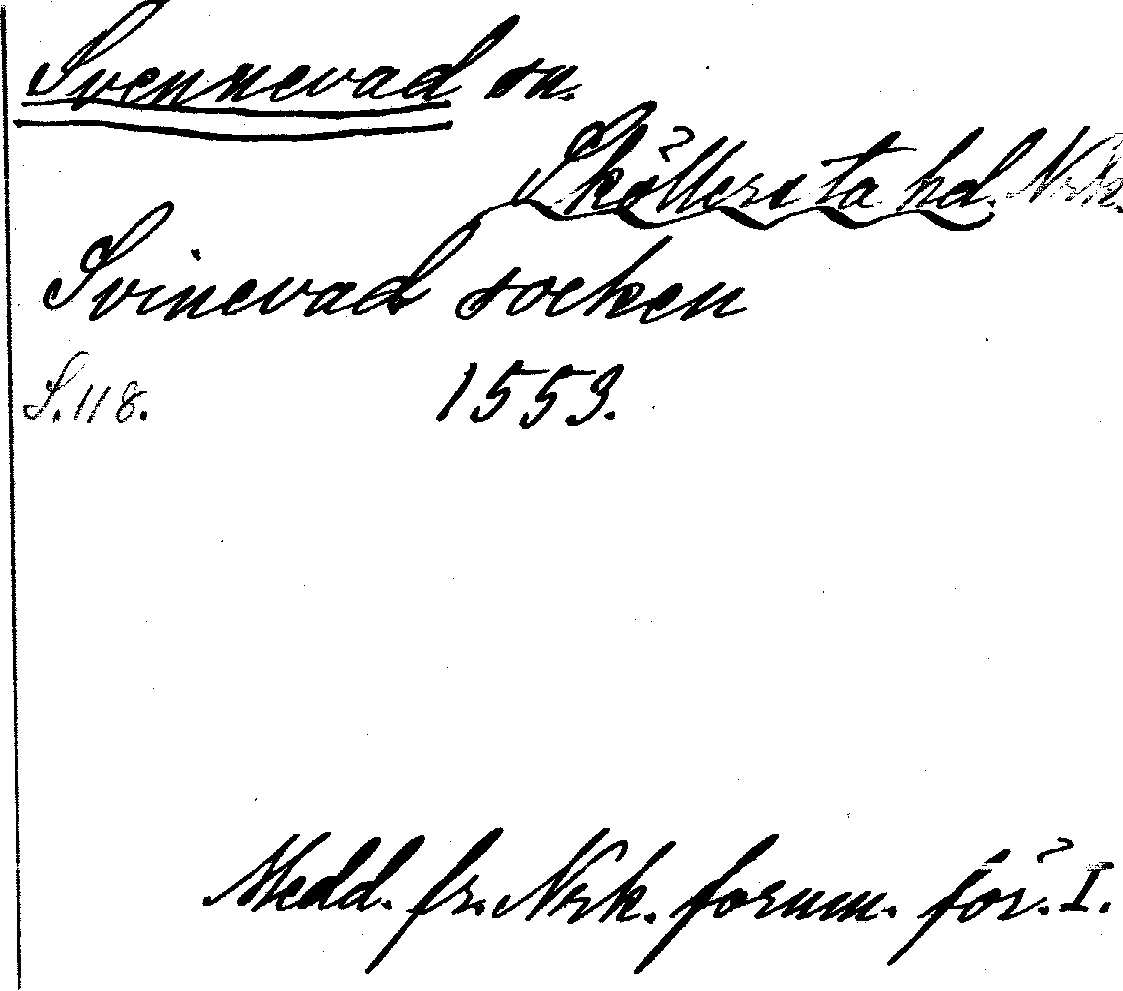 Svennevad sn.
Sköllersta hd. Nrk.
Svinevad socken
S. 118. 1553.
Medd. fr. Nrk. fornm. för. I.